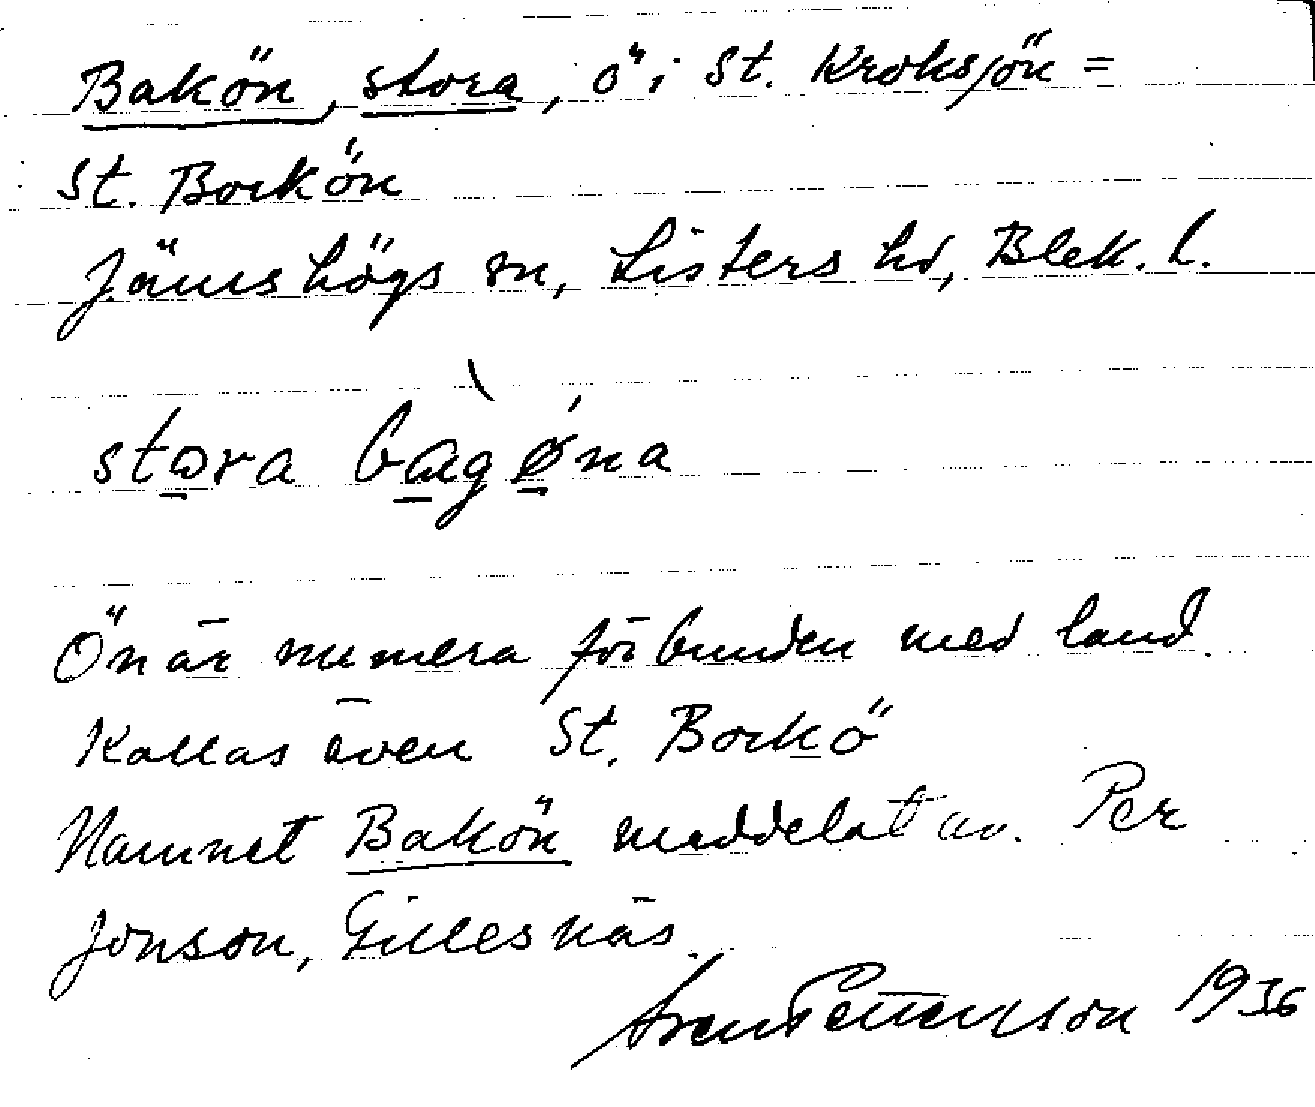 Bakön, stora, ö i St. Kroksjön =
St. Bockön
Jämshögs sn, Listers hd, Blek. l.
stora bàgǿna
Ön är numera förbunden med land.
Kallas även St. Bockö
Namnet Bakön meddelat av. Per
Jonson, Gillesnäs.
Sven Pettersson 1936